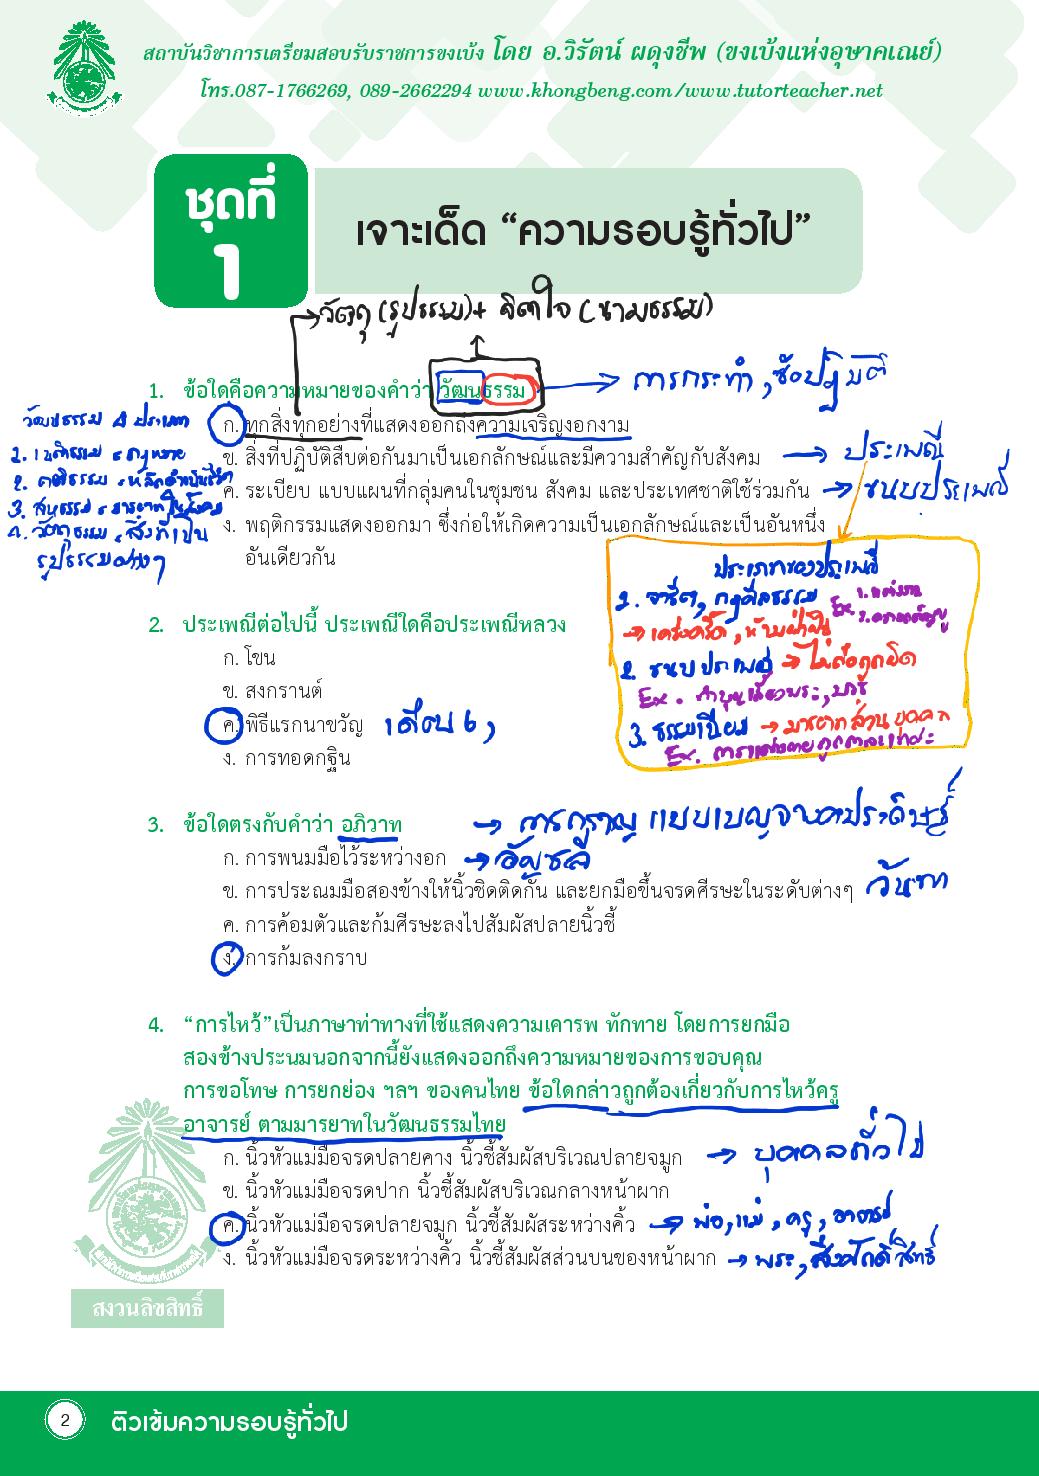 สถาบันวิชาการเตรียมสอบรับราชการขงเบ้ง โดย อ.วิรัตน์ ผดุงชีพ (ขงเบ้งแห่งอุษาคเณย์)
โทร.087-1766269, 089-2662294 www.khongbeng.com/www.tutorteacher.net
ชุดที่
1
เจาะเด็ด “ความรอบรู้ทั่วไป”
วัตถุ (รูปธรรม) + จิตใจ (นามธรรม)
1. ข้อใดคือความหมายของคำว่า วัฒนธรรม
การกระทำ, ข้อปฏิบัติ
ก. ทุกสิ่งทุกอย่างที่แสดงออกถึงความเจริญงอกงาม
ข. สิ่งที่ปฏิบัติสืบต่อกันมาเป็นเอกลักษณ์และมีความสำคัญกับสังคม
ประเพณี
ค. ระเบียบ แบบแผนที่กลุ่มคนในชุมชน สังคม และประเทศชาติใช้ร่วมกัน
ขนบประเพณี
ง. พฤติกรรมแสดงออกมา ซึ่งก่อให้เกิดความเป็นเอกลักษณ์และเป็นอันหนึ่ง
อันเดียวกัน
วัฒนธรรม 4 ประเภท
1. เนติธรรม = กฎหมาย
2. คติธรรม = หลักดำเนินชีวิต
3. สหธรรม = มารยาทในสังคม
4. วัตถุธรรม = สิ่งที่เป็น
รูปธรรมต่างๆ
ประเภทของประเพณี
1. จารีต, กฎศีลธรรม
→ เคร่งครัด, ห้ามฝ่าฝืน
Ex. 1. แต่งงาน
2. ความกตัญญู
2. ขนบประเพณี → ไม่ถือถูกผิด
Ex. ทำบุญเลี้ยงพระ, บวช
3. ธรรมเนียม → มารยาทส่วนบุคคล
Ex. การแต่งกายถูกกาลเทศะ
2. ประเพณีต่อไปนี้ ประเพณีใดคือประเพณีหลวง
ก. โขน
ข. สงกรานต์
ค. พิธีแรกนาขวัญ
เดือน 6,
ง. การทอดกฐิน
3. ข้อใดตรงกับคำว่า อภิวาท
→ การกราบแบบเบญจางคประดิษฐ์
ก. การพนมมือไว้ระหว่างอก
→ อัญชลี
ข. การประณมมือสองข้างให้นิ้วชิดติดกัน และยกมือขึ้นจรดศีรษะในระดับต่างๆ
วันทา
ค. การค้อมตัวและก้มศีรษะลงไปสัมผัสปลายนิ้วชี้
ง. การก้มลงกราบ
4. “การไหว้”เป็นภาษาท่าทางที่ใช้แสดงความเคารพ ทักทาย โดยการยกมือ
สองข้างประนมนอกจากนี้ยังแสดงออกถึงความหมายของการขอบคุณ
การขอโทษ การยกย่อง ฯลฯ ของคนไทย ข้อใดกล่าวถูกต้องเกี่ยวกับการไหว้ครู
อาจารย์ ตามมารยาทในวัฒนธรรมไทย
ก. นิ้วหัวแม่มือจรดปลายคาง นิ้วชี้สัมผัสบริเวณปลายจมูก
→ บุคคลทั่วไป
ข. นิ้วหัวแม่มือจรดปาก นิ้วชี้สัมผัสบริเวณกลางหน้าผาก
ค. นิ้วหัวแม่มือจรดปลายจมูก นิ้วชี้สัมผัสระหว่างคิ้ว
→ พ่อ, แม่, ครู, อาจารย์
ง. นิ้วหัวแม่มือจรดระหว่างคิ้ว นิ้วชี้สัมผัสส่วนบนของหน้าผาก
→ พระ, สิ่งศักดิ์สิทธิ์
สงวนลิขสิทธิ์
2 ติวเข้มความรอบรู้ทั่วไป